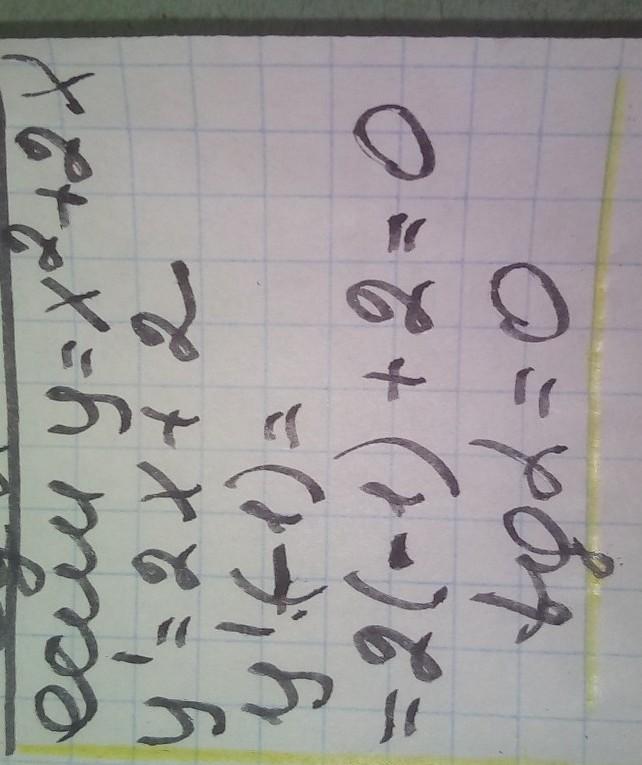 если y=x²+2x
y'=2x+2
y'(-1)=
=2(-1)+2=0
tgα=0